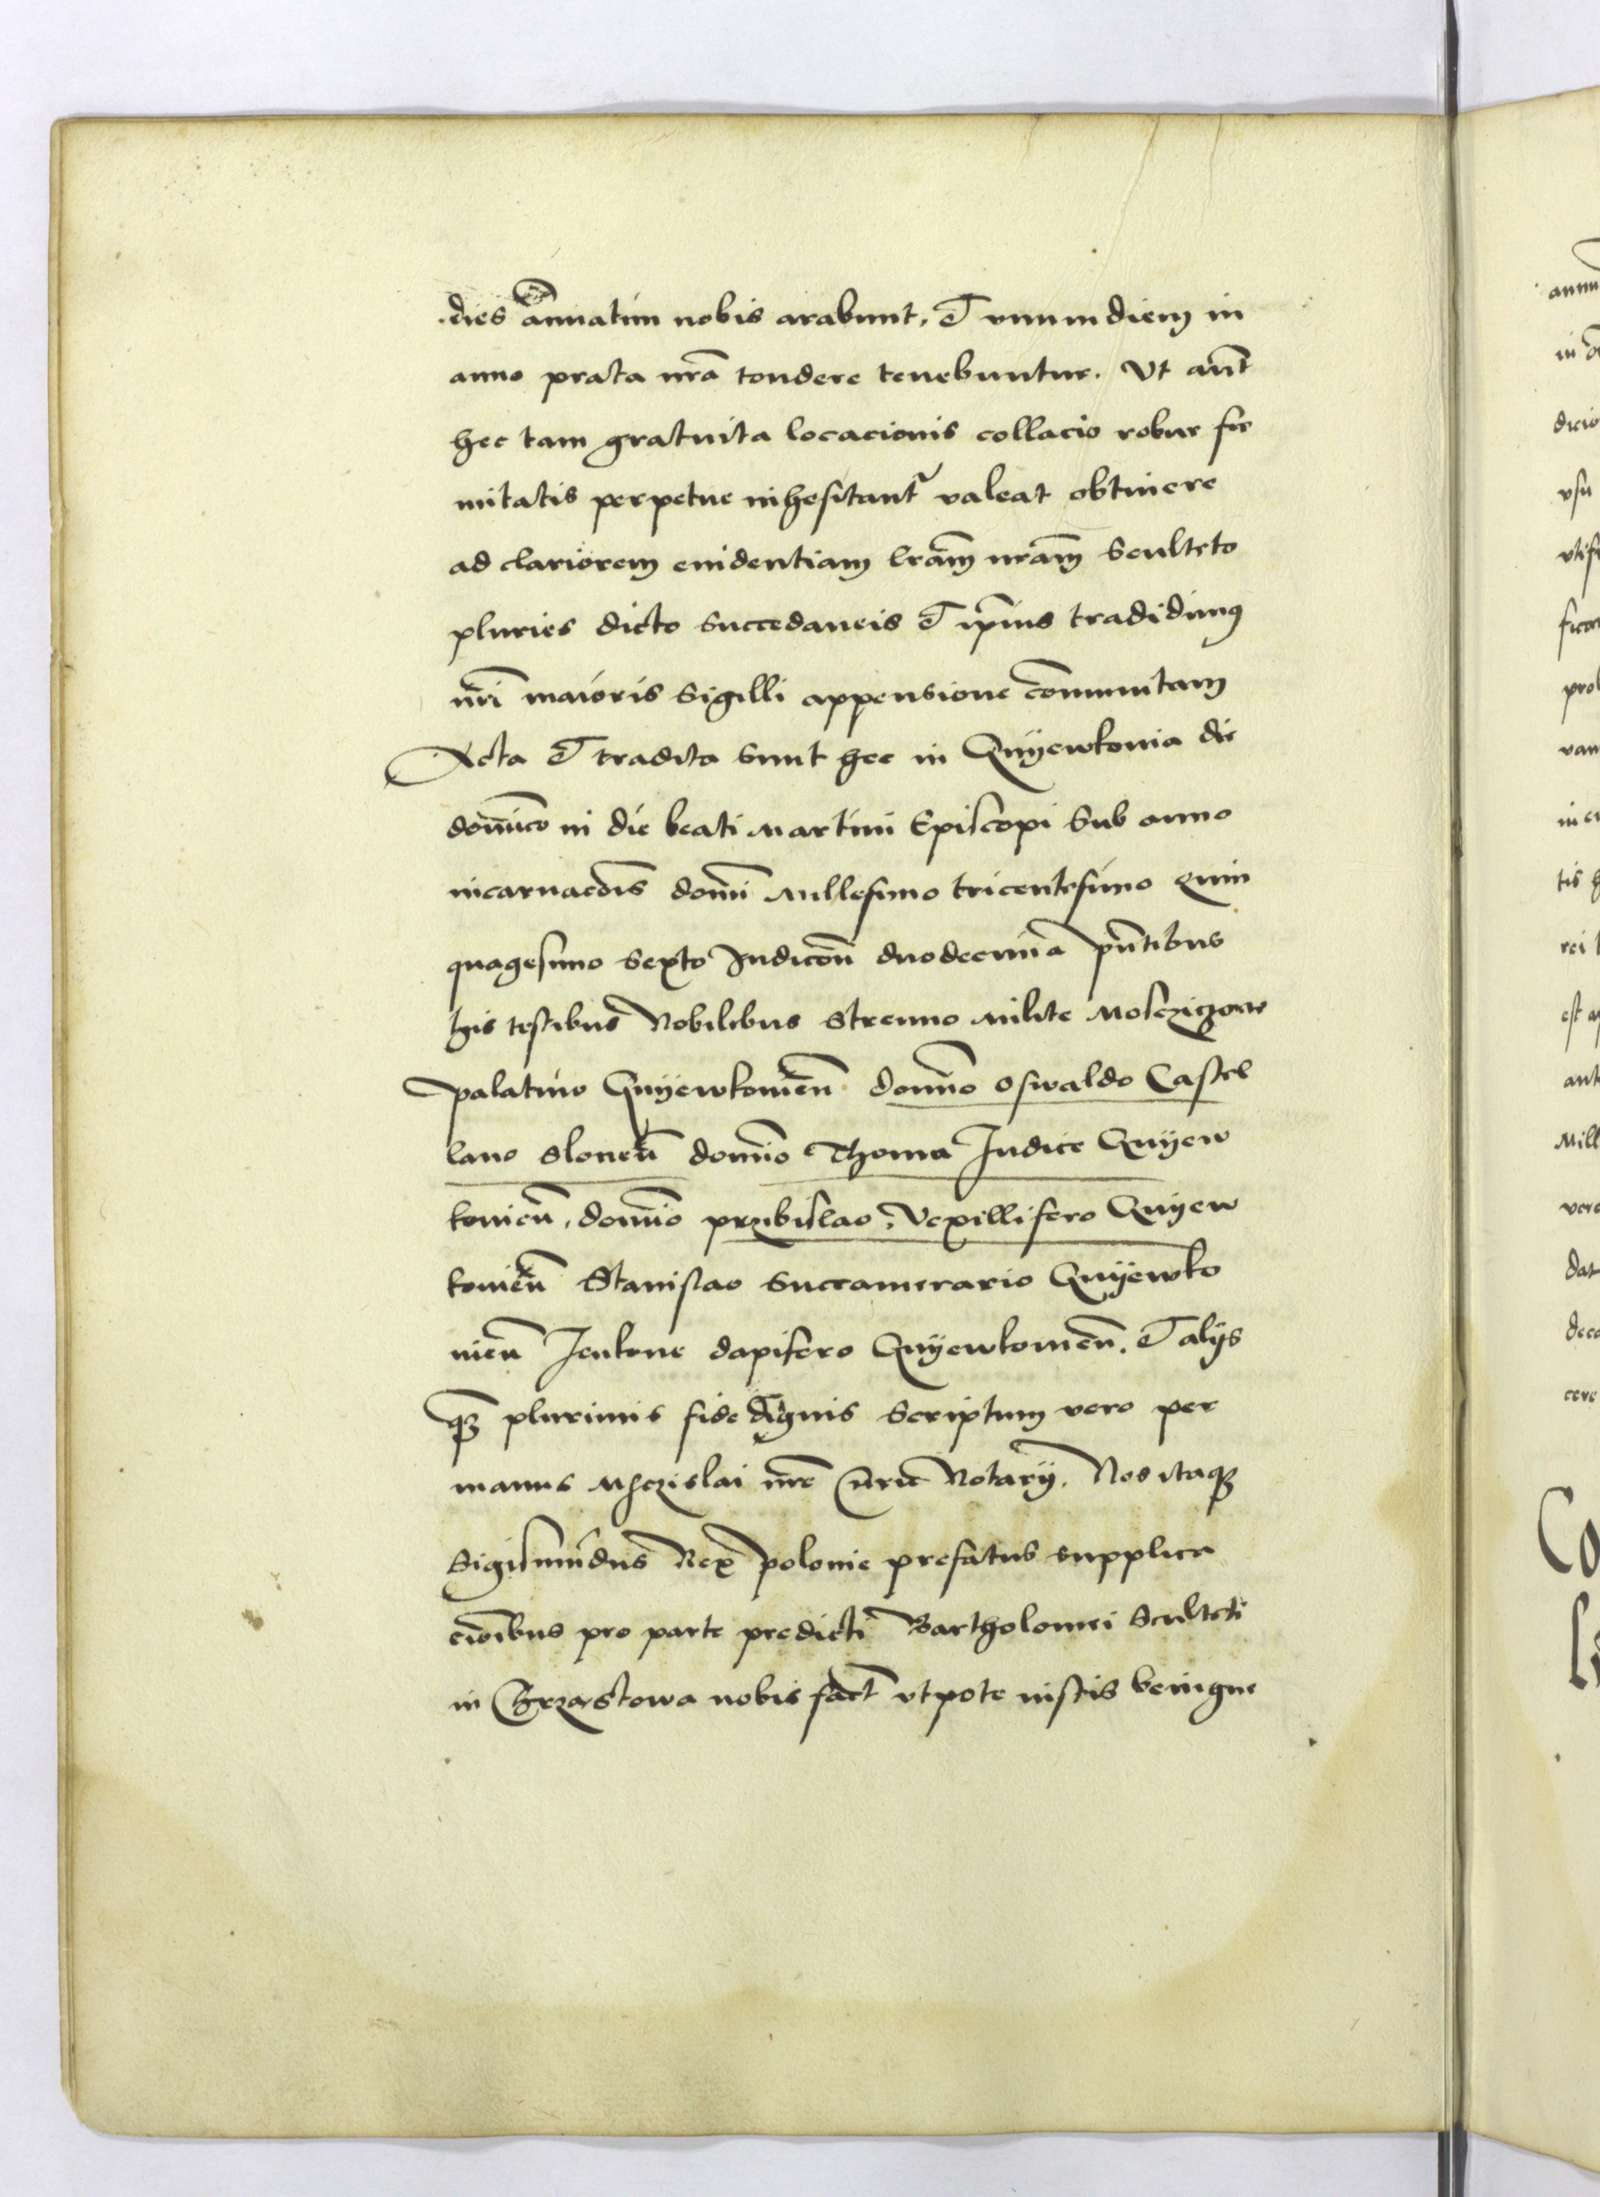 dies annuatim nobis arabunt, Et vnum diem in
anno prata nrã tondere tenebuntur. Vt aut̃
hec tam gratuita locacionis collacio robur fir
mitatis perpetue inhesitant̃ valeat obtinere
ad clariorem euidentiam lrãm nrãm Sculteto
pluries dicto Succedaneis Et ip̃ius tradidimꝰ
nr̃i maioris Sigilli appensione com̃unitam
Acta Et tradita Sunt hec in Gnÿewkouia die
domĩco in die beati Martini Episcopi Sub anno
incarnacõis domĩ Millesimo tricentesimo Quin
quagesimo Sexto Indicõñ duodecima pñtibus
his testibus Nobilibus Strenuo Milite
palatino Gnÿewkouieñ domĩo Oswaldo Castel
lano Sloneñ domĩo Thoma Iudice Gnÿew
kouieñ, domĩo przibislao, Vexillifero Gnÿew
kouieñ Stanislao Succamerario Gnÿewko
uieñ Jenkone dapifero Gnÿewkouieñ. Et alÿs
qꝫ plurimis fide dignis Scriptum vero per
manus Msczislai nr̃e Curie Notarÿ. Nos itaqꝫ
Sigismũdus Rex polonie prefatus supplica
cionibus pro parte predicti Bartholomei Sculteti
in Chrzastowa nobis fact̃ vtpote iustis benigne
annu
in
dicio
vsu
vtifr
prol
van
in
tis h
rei
est
ant
Mill
vero
dat
deca
cere
Co